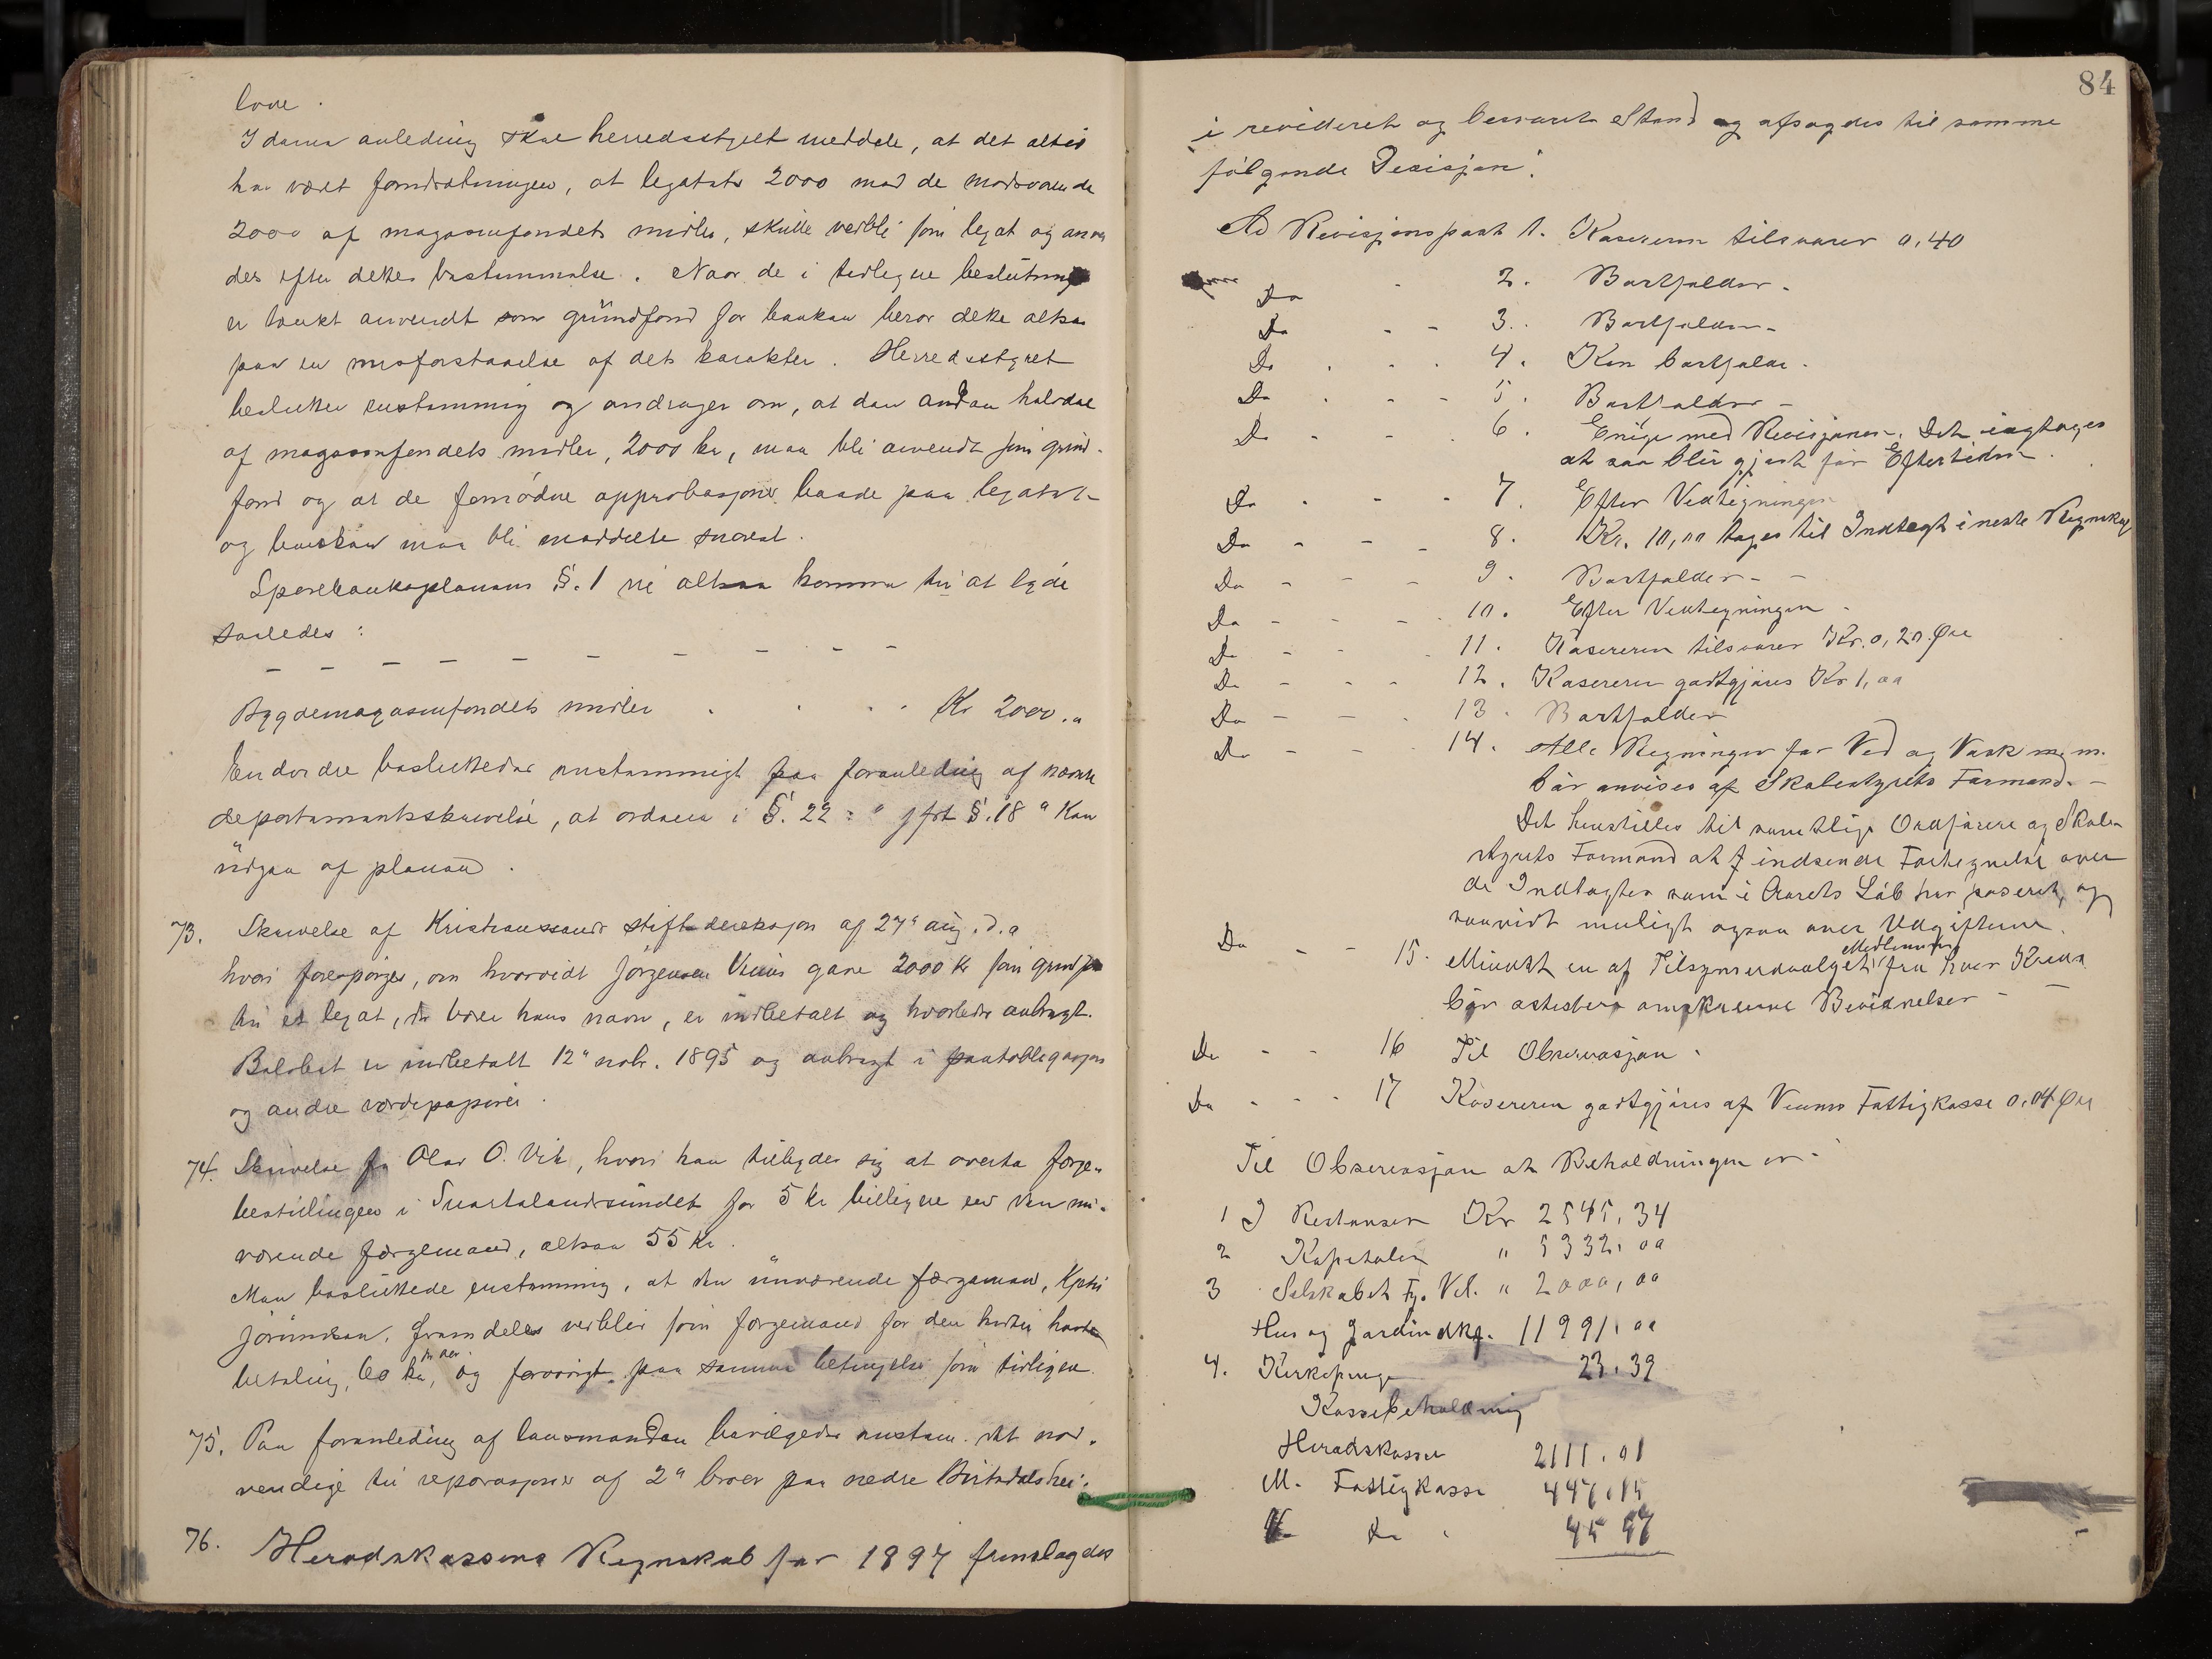 love.
I denne anledning skal herredsstyret meddele, at det altid
har været forudsætningen, at legatets 2000 med de modsvarende
2000 af magasinfondets midler, skulle verbli som legat og anven
des efter dettes bestemmelse. Naar de i tidligere beslutning
er tænkt anvendt som grundfond for banken beror dette altsaa
paa en misforstaaelse af dets karakter. Herredsstyret
beslutter enstemmig og andrager om, at den anden halvdel
af magasinfondets midler, 2000 kr, maa bli anvendt som grund-
fond og at de fornødne approbasjoner baade paa legatet
og banken maa bli meddelte snarest.
Sparebankplanens §. 1 vil altsaa komme til at lyde
saaledes:
Bygdemagasinfondets midler Kr 2000.„
Endvidre besluttedes enstemmigt paa foranledning af nævnte
departementsskrivelse, at ordene i §. 22: " jfrt §. 18 " kan
udgaa af planen.
73. Skrivelse af Kristianssands stiftsdireksjon af 27" aug. d. a
hvori forespørges, om hvorvidt Jørgensen gave 2000 kr som grundfond
til et legat, der bærer hans navn, er indbetalt og hvorledes anbragt.
Beløbet er indbetalt 12" nobr. 1895 og anbragt i pantobligasjon
og andre værdipapirer.
74. Skrivelse fra Olav O. Vik, hvori han tilbyder sig at overta færge-
bestillingen i Svartalandsundet for 5 kr billigere end den nu-
værende færgemand, altsaa 55 kr.
Man besluttede enstemmig, at den nuværende færgemand, Kjetil
Jørundsen, fremdeles verblir som færgemand for den hidtil havte
betaling, 60 kr, pr aar og forøvrigt paa samme betingelser som tidligere.
75. Paa foranledning af lensmanden bevilgedes enstem. det nød-
vendige til reparasjoner af 2" broer paa nedre Birtedalsvei.
76. Heredskassens Regnskab for 1897 fremlagdes
84
i revideret og besvaret Stand og afsagdes til samme
følgende Desisjon:
Ad Revisjonspost 1. Kasereren tilsvarer 0,40
Do - 2. Bortfalder.
Do - - 3. Bortfalder -
Do . . . 4. Kan bortfalde.
Do . . - 5. Bortfalder -
Do - - . 6. Enige med Revisjonen. Det iagtages
at saa blir gjort for Eftertiden.
Do - - - 7. Efter Vedtegningen
Do - - - 8. Kr. 10,00 tages til Indtegt i neste Regnskab
Do - - - 9. Bortfalder - -
Do - - - 10. Efter Vedtegningen -
Do - - - 11. Kasereren tilsvarer Kr. 0,20 Øre
Do - - - 12. Kasereren godtgjøres Kr 1,00
Do - - . 13. Bortfalder
Do - - - 14. Alle Regninger for Ved og Vask m. m.
bør anvises af Skolestyrets Formand. -
Det henstilles til samtlige Ordførere og Skole-
styrets Formand at indsende Fortegnelse over
de Indtegter som i Aarets Løb har paseret, og
saavidt muligt ogsaa over Udgifterne.
Do - - 15. Mindst en af Tilsynsudvalgets Medlemmer fra hver Kreds
bør attestere omskrevne Bevidnelser - -
Do - - 16 Til Observasjon.
Do - - - 17 Kasereren godtgjøres af Fattigkasse 0,04 Øre
Til Observasjon at Beholdningen er:
1 I Restanser Kr 2545,34
2 Kapitaler " 5332,00
3 Selskabet Fy. Vel. " 2000,00
Hus og Jordindkg. 11991,00
4. Kirkepenge 23,39
Kassebeholdning
Heradskassen 2111.01
M. Fattigkasse 447,15
V. Do . 45 97